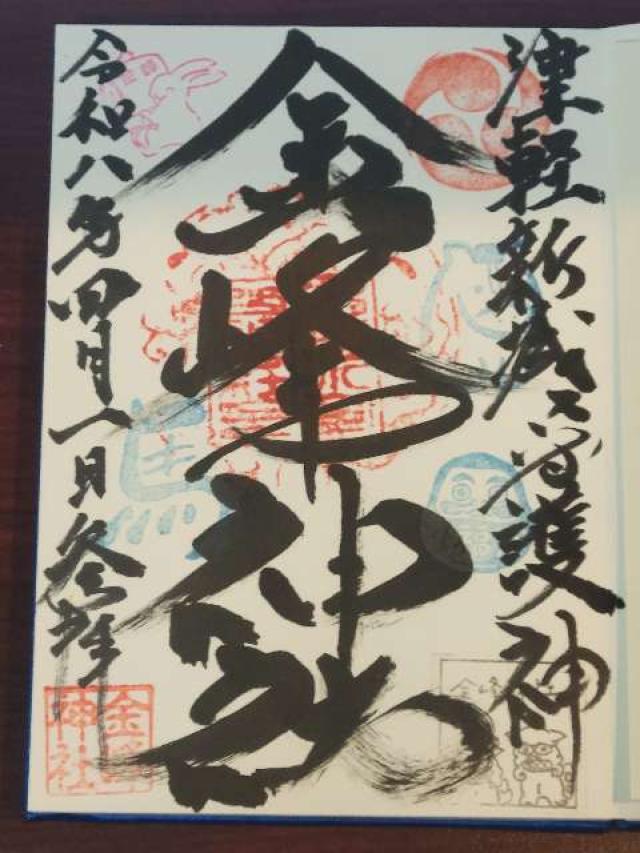 津軽新城之守護神
金峰神社
令和八年四月一日参拝
馬
金峰神社